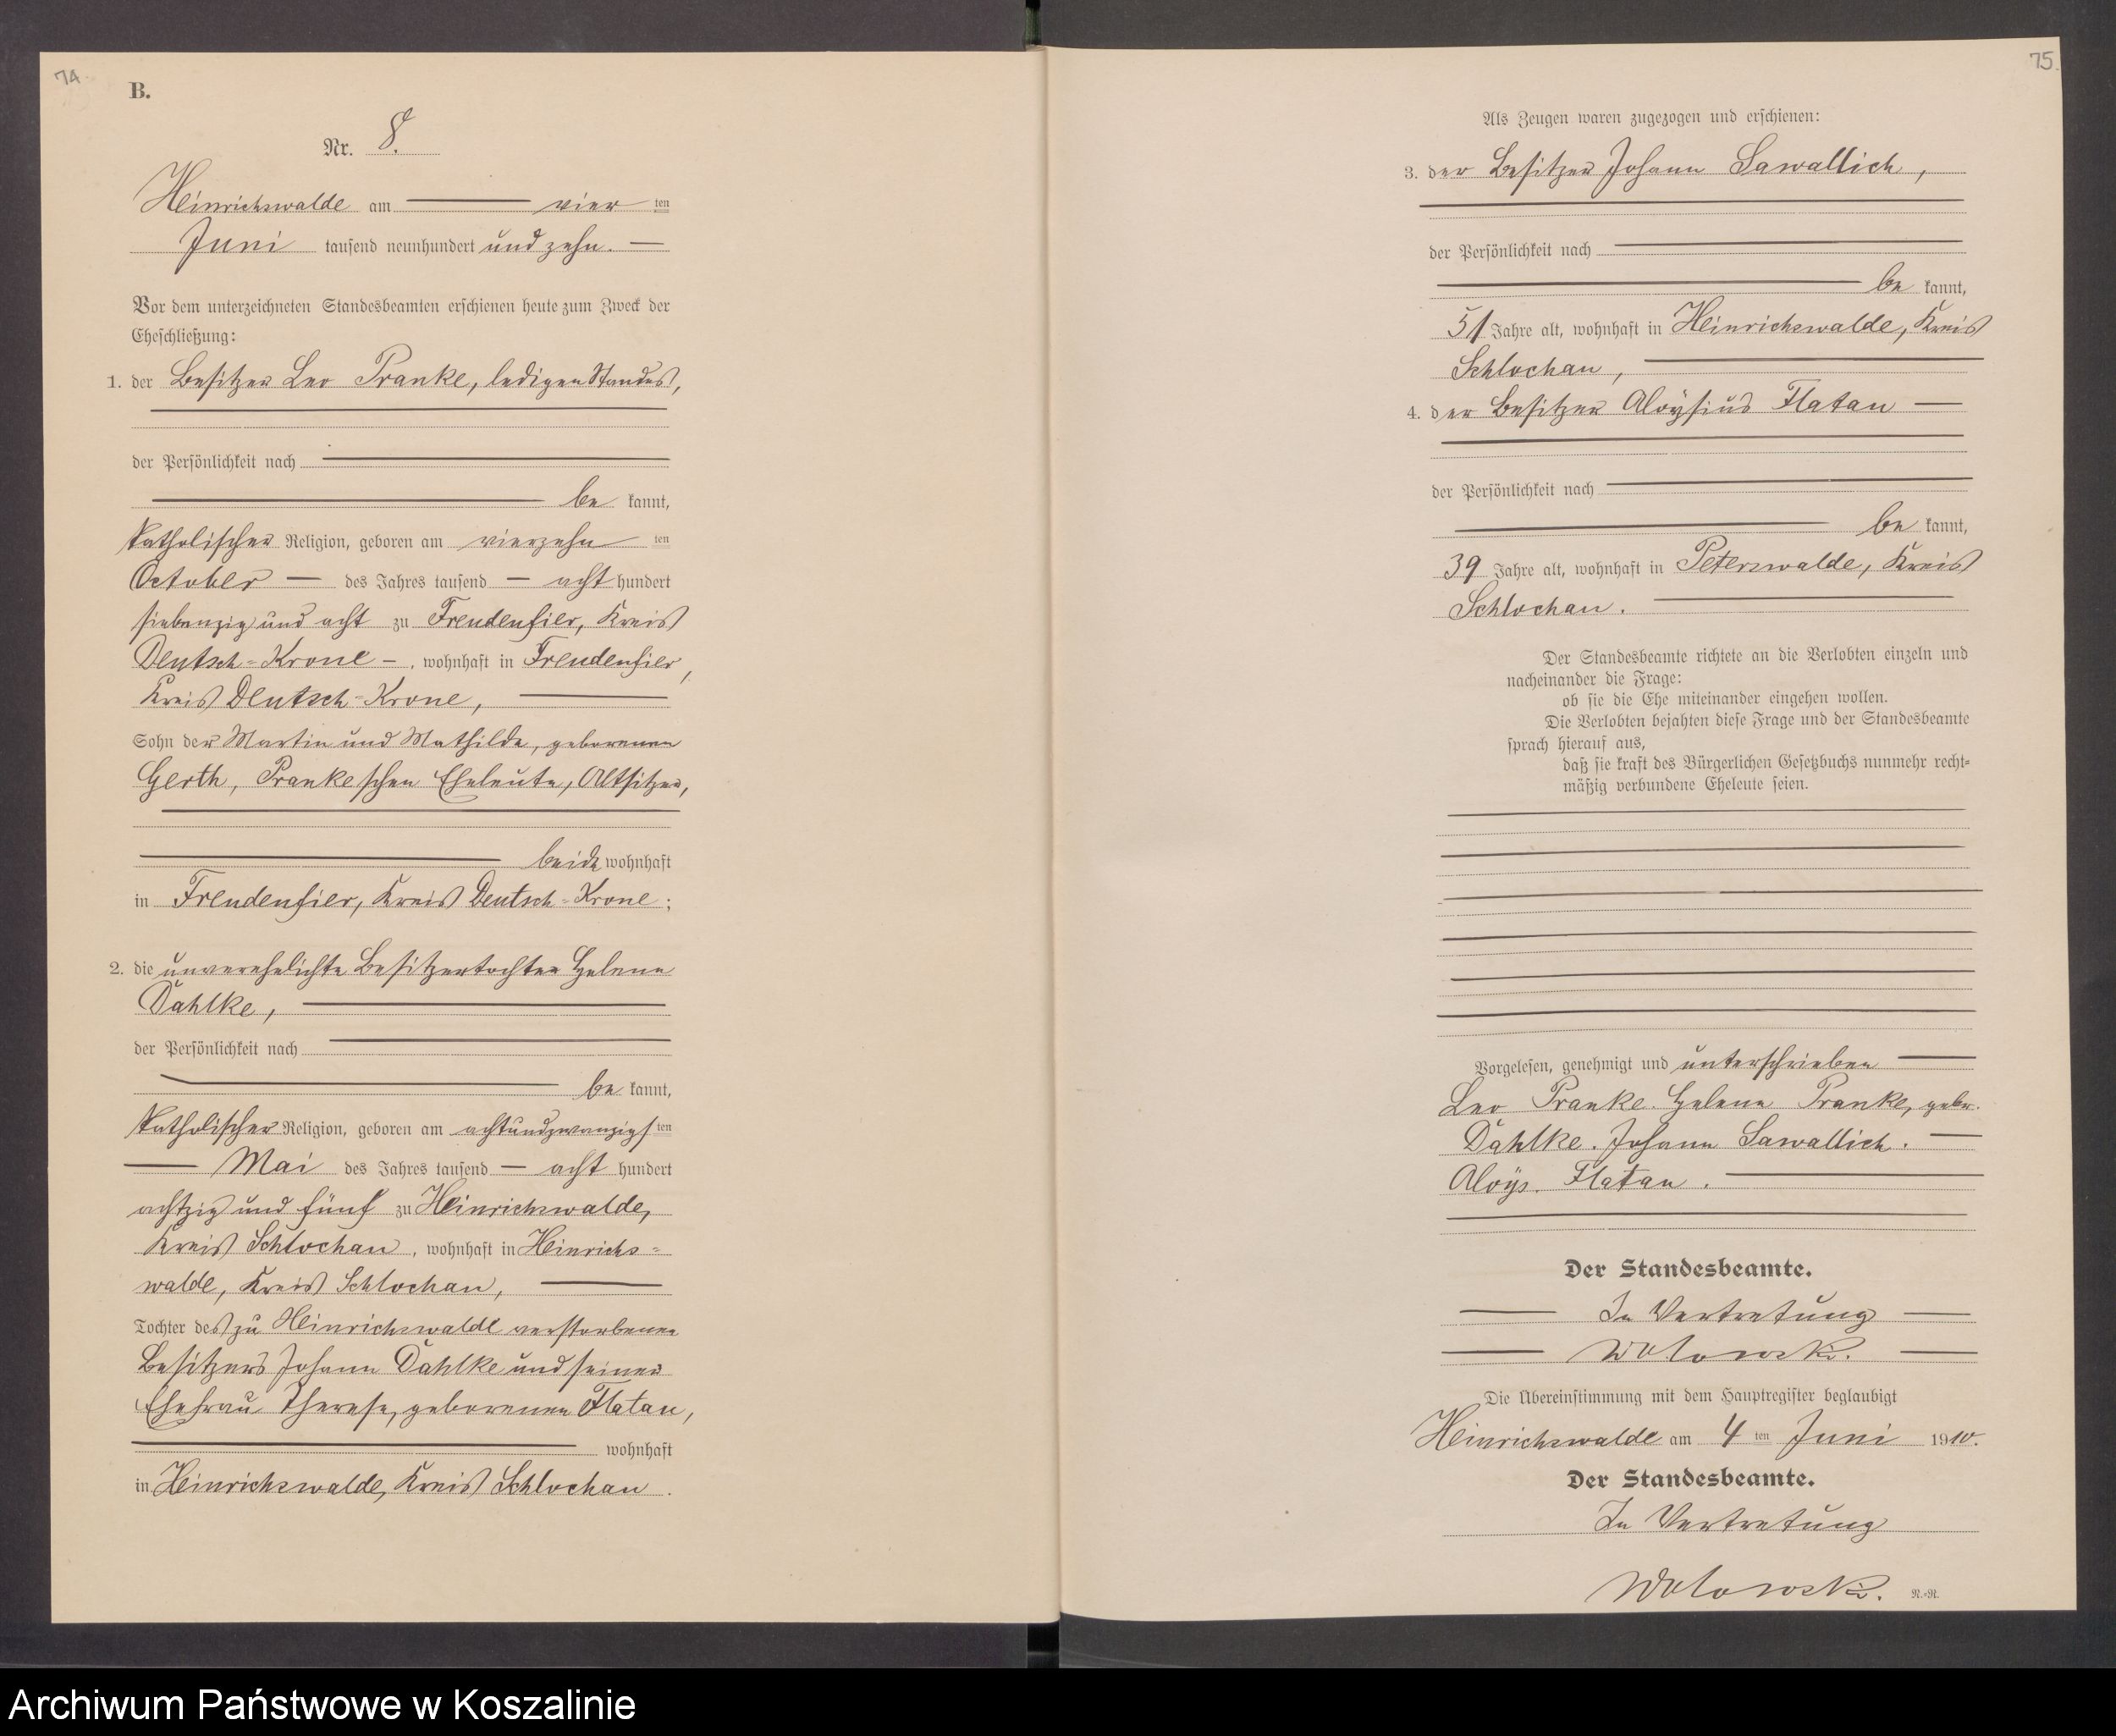 74
B.
Nr. 8.
Heinrichswalde am vier ten
Juni tausend neunhundert und zehn.
Vor dem unterzeichneten Standesbeamten erschienen heute zum Zweck der
Eheschließung:
1. der Besitzer Leo Pranke, ledigen Standes,
der Persönlichkeit nach
be kannt,
katholischer Religion, geboren am vierzehn ten
October des Jahres tausend acht hundert
siebenzig und acht zu Freudenfier, Kreis
Deutsch-Krone, wohnhaft in Freudenfier,
Kreis Deutsch-Krone,
Sohn der Martin und Mathilde, geborenen
Gerth, Pranke'schen Eheleute, Altsitzer,
beide wohnhaft
in Freudenfier, Kreis Deutsch-Krone;
2. die unverehelichte Besitzertochter Helene
Dahlke,
der Persönlichkeit nach
be kannt,
katholischer Religion, geboren am achtundzwanzigs ten
Mai des Jahres tausend acht hundert
achtzig und fünf zu Heinrichswalde,
Kreis Schlochau, wohnhaft in Heinrichs=
walde, Kreis Schlochau,
Tochter des zu Heinrichswalde verstorbenen
Besitzers Johann Dahlke und seiner
Ehefrau Therese, geborenen Flatau,
wohnhaft
in Heinrichswalde, Kreis Schlochau.
75.
Als Zeugen waren zugezogen und erschienen:
3. der Besitzer Johann Sawallich,
der Persönlichkeit nach
be kannt,
51 Jahre alt, wohnhaft in Heinrichswalde, Kreis
Schlochau,
4. der Besitzer Aloysius Flatau
der Persönlichkeit nach
be kannt,
39 Jahre alt, wohnhaft in Peterswalde, Kreis
Schlochau.
Der Standesbeamte richtete an die Verlobten einzeln und
nacheinander die Frage:
ob sie die Ehe miteinander eingehen wollen.
Die Verlobten bejahten diese Frage und der Standesbeamte
sprach hierauf aus,
daß sie kraft des Bürgerlichen Gesetzbuchs nunmehr recht=
mäßig verbundene Eheleute seien.
Vorgelesen, genehmigt und unterschrieben
Leo Pranke. Helene Pranke, gebr.
Dahlke. Johann Sawallich.
Aloys. Flatau.
Der Standesbeamte.
In Vertretung
Wolowski.
Die Übereinstimmung mit dem Hauptregister beglaubigt
Heinrichswalde am 4 ten Juni 1910.
Der Standesbeamte.
In Vertretung
Wolowski.
R.=R.
Archiwum Państwowe w Koszalinie